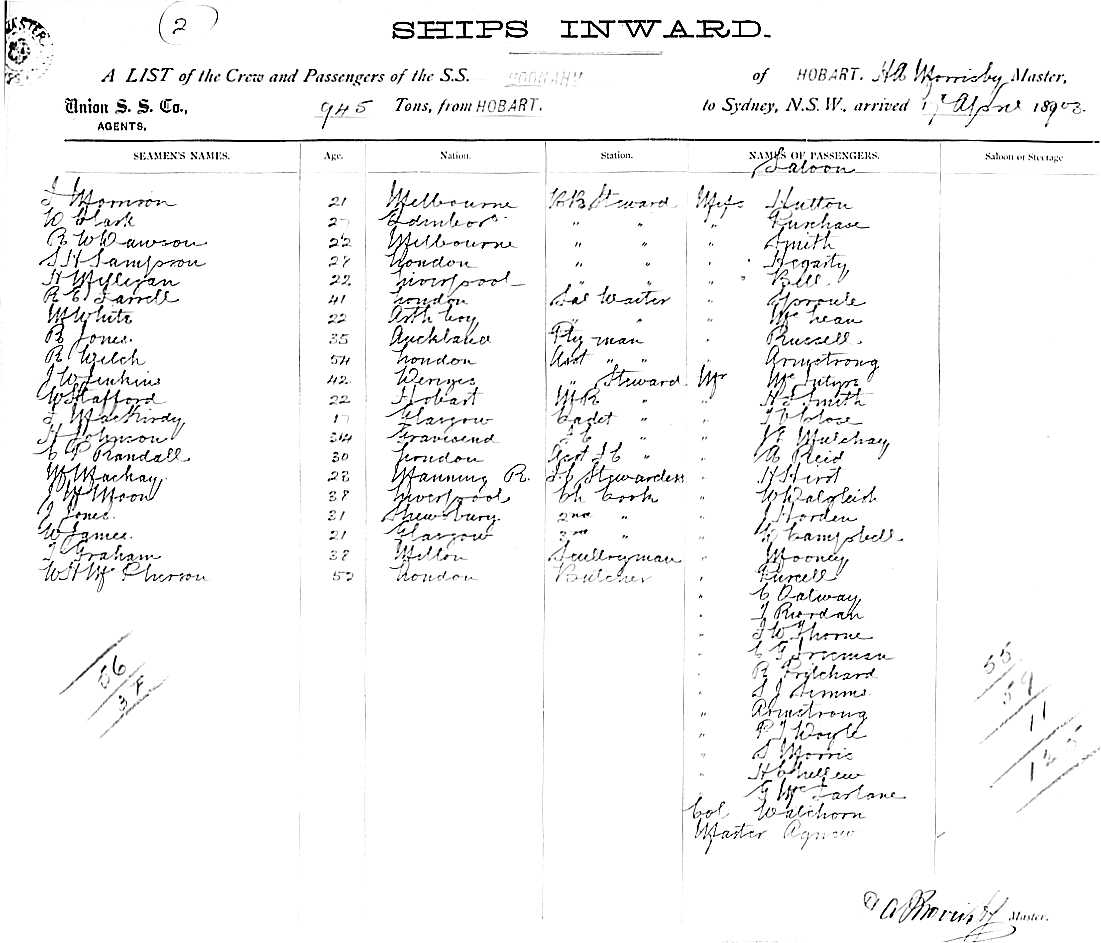 2
SHIPS INWARD.
A LIST of the Crew and Passengers of the S.S. of HOBART. HA Morrisby Master,
Union S. S. Co., 945 Tons, from HOBART. to Sydney, N.S.W., arrived April 1903
AGENTS,
SEAMEN'S NAMES. Age. Nation. Station. NAMES OF PASSENGERS. Saloon or Steerage
Saloon
Morrison 21 Melbourne Steward Miss Hutton
W Clark Edinboro " " " Purchase
R W Dawson 22 Melbourne " " " Smith
S H Sampson London " " " Hegarty
H Milligan 22 Liverpool " " " Bell
R E Farrell 41 London Sal Waiter " Sproule
W White 22 " " " McLean
R Jones 35 Auckland Pty man " Russell
R Welch 54 London Asst " " " Armstrong
J W Jenkins 42 " Steward Mr McIntyre
W Stafford 22 Hobart " " H S Smith
MacKirdy 17 Glasgow Cadet " " Close
H Johnson Gravesend " " Mulchay
C F Randall 30 London " " Reid
M Mackay 28 Manning R. Stewardess " H Hirst
J H Moon 38 Liverpool Ch Cook " W Dalgleish
J Jones 31 Shewsbury 2nd " " Horden
W James 21 Glasgow 3rd " " Campbell
J Graham 38 Milton Sculleryman " Mooney
W H McPherson London Butcher " Purcell
" C Oalway
" J Riordan
" J W Thorne
" Foreman
" R Pritchard
" S J Simms
" Armstrong
" P J Doyle
" S Morris
" H Chellew
" McFarlane
Col Walchorn
Master Agnew
56
38
55
59
11
125
Master.